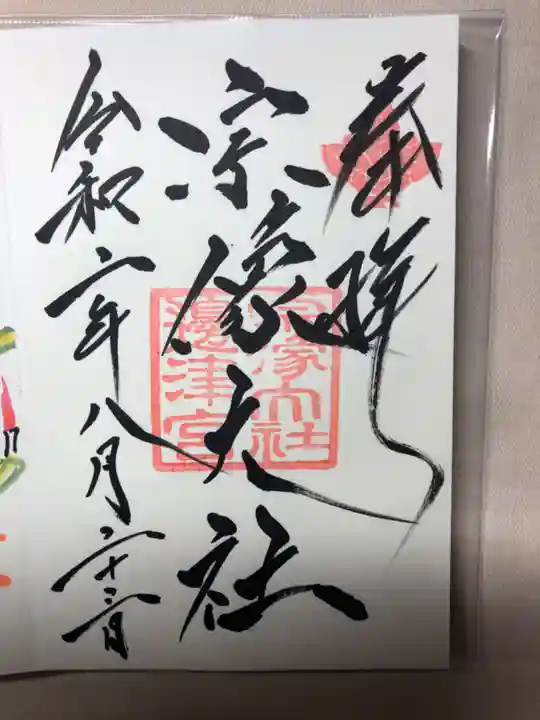 奉拝
宗像大社
令和六年八月二十三日
宗像大社
邊津宮